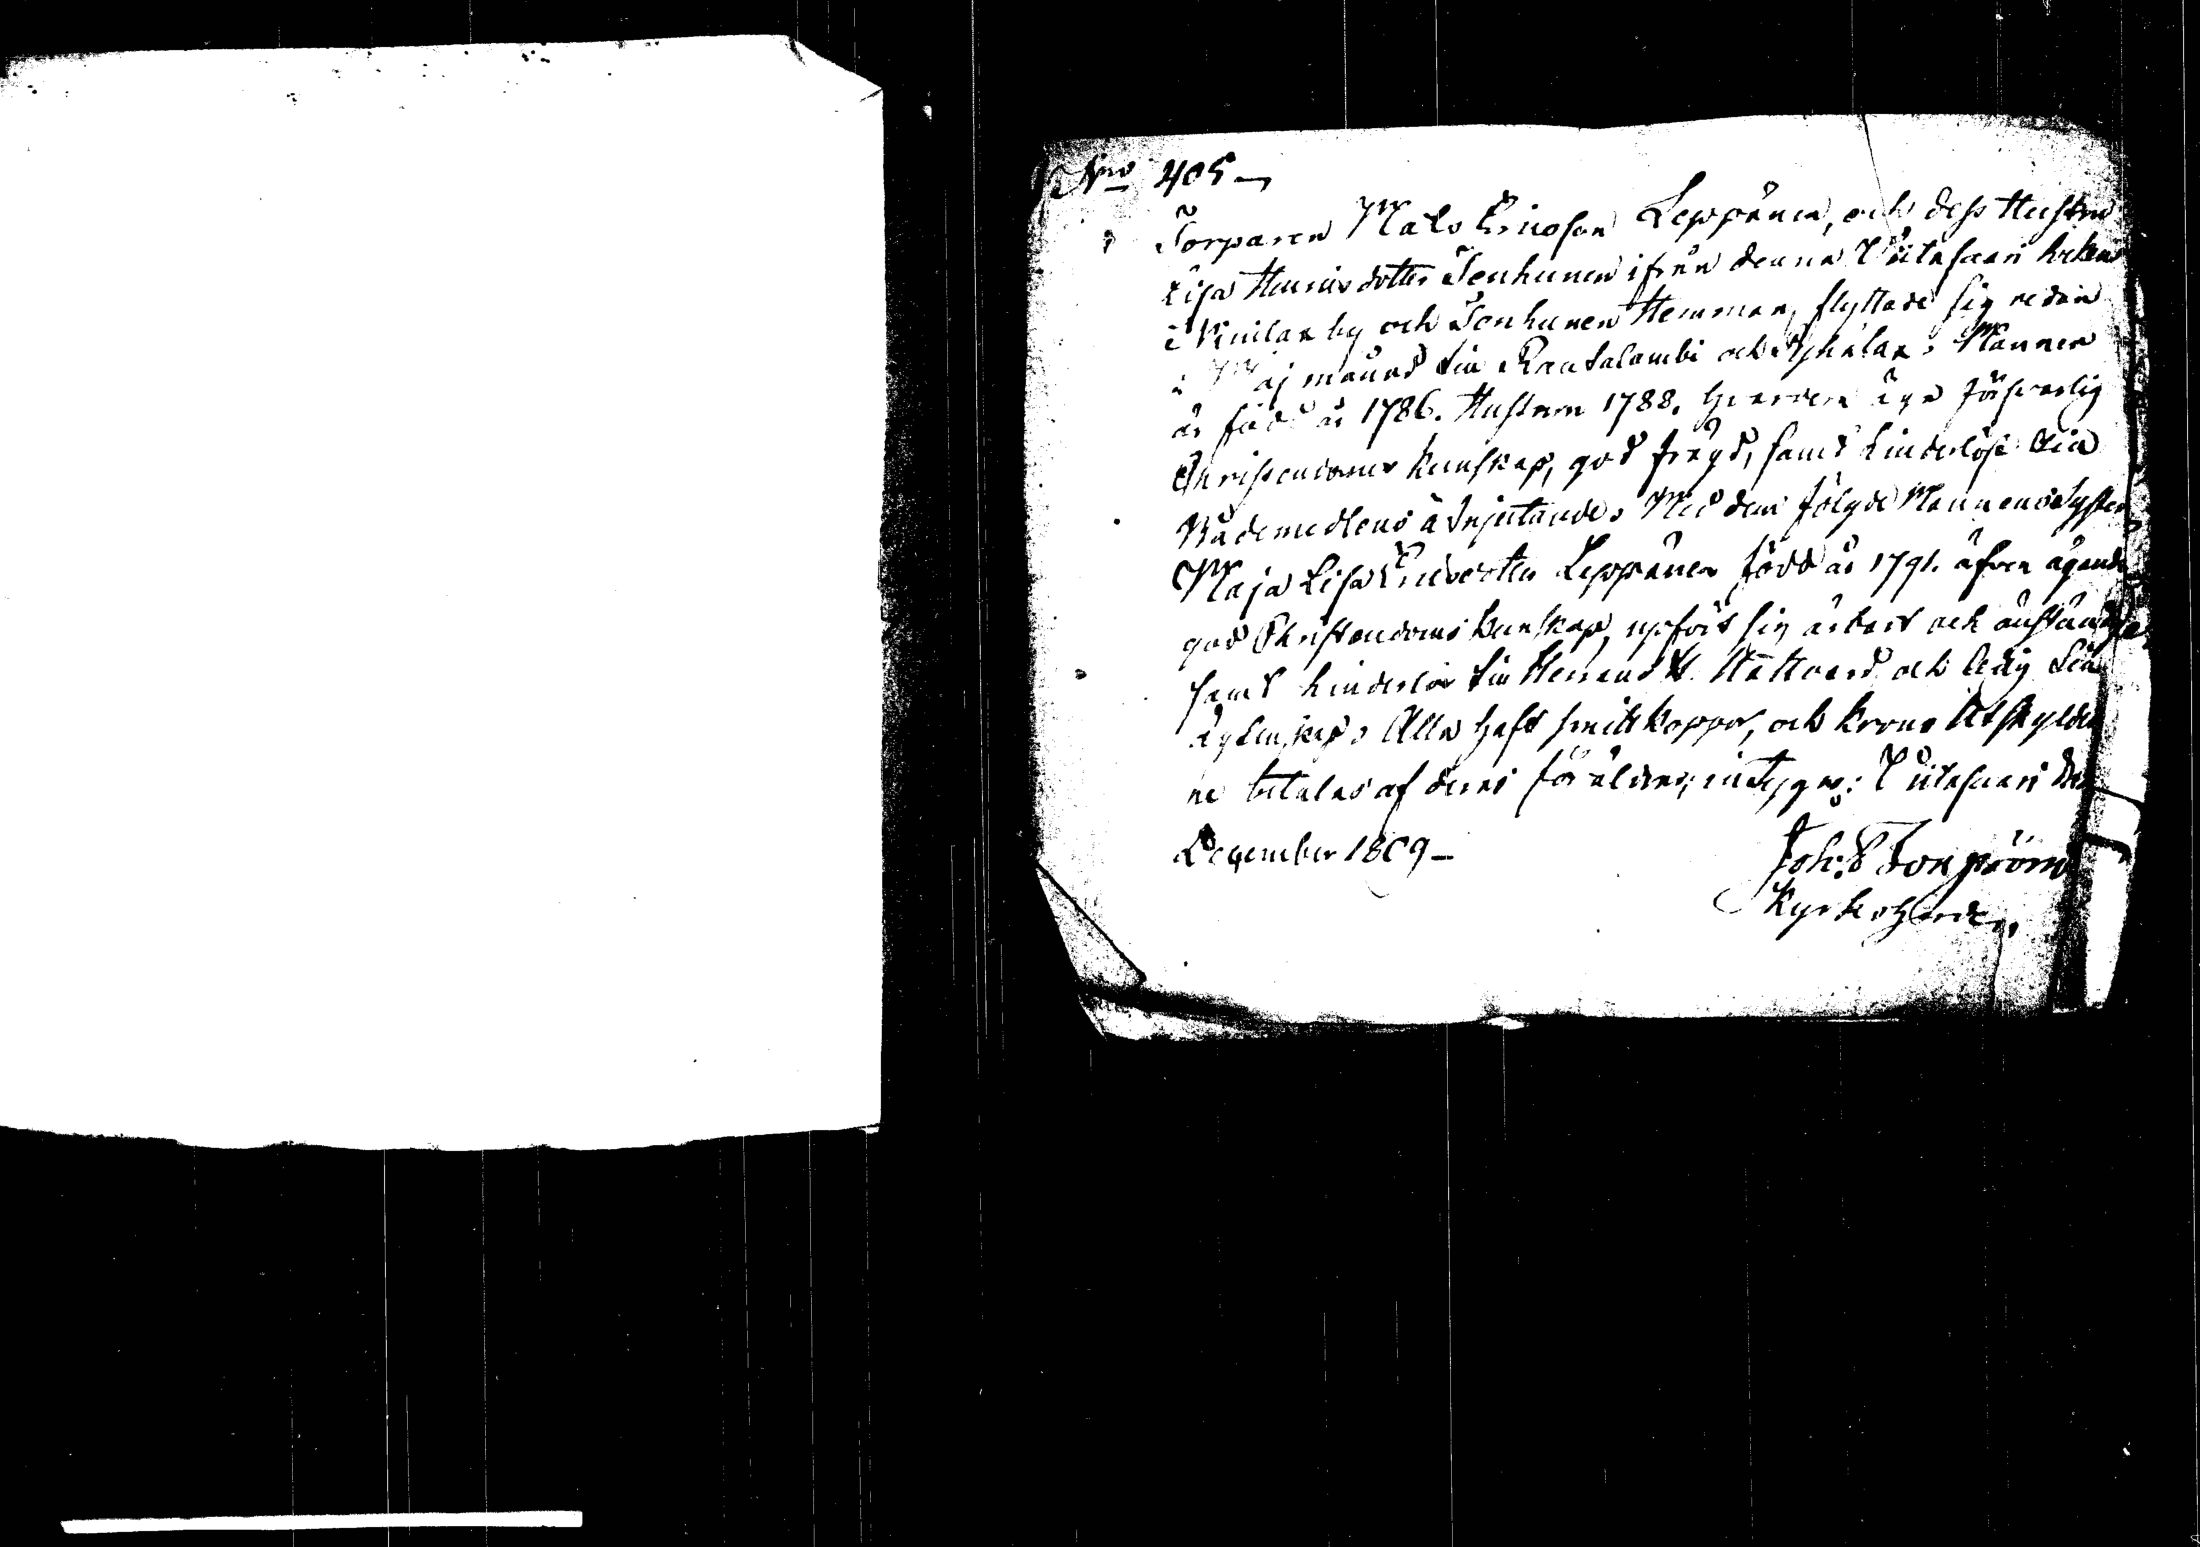 No 405
Torparen Mats Ericsson Leppänen, och dess Hustru
Lisa Henricsdotter Tenhunen ifrån denna Viitasaari Sokns
i by och Tenhunen Hemman, flyttade sig redan
i Maj månad till Rautalambi och . Mannen
är född år 1786. Hustrun 1788. äga försvarlig
Christendoms kunskap, god frägd, samt hinderlöse till
Nådemedlens åtnjutande. Med dem fölgde Mannens Syster
Maja Lisa Ericsdotter Leppänen född år 1791. äfven ägande
god Christendoms kunskap, upfört sig ärbart och anständigt
samt hinderlös till Herrans H. Nattvard och ledig till
Äktenskap. Alla haft smittkoppor, och krono Utskylder
ne betalas af deras föräldrar; intygar: Viitasaari den
December 1809
Joh:
Kyrkoherde